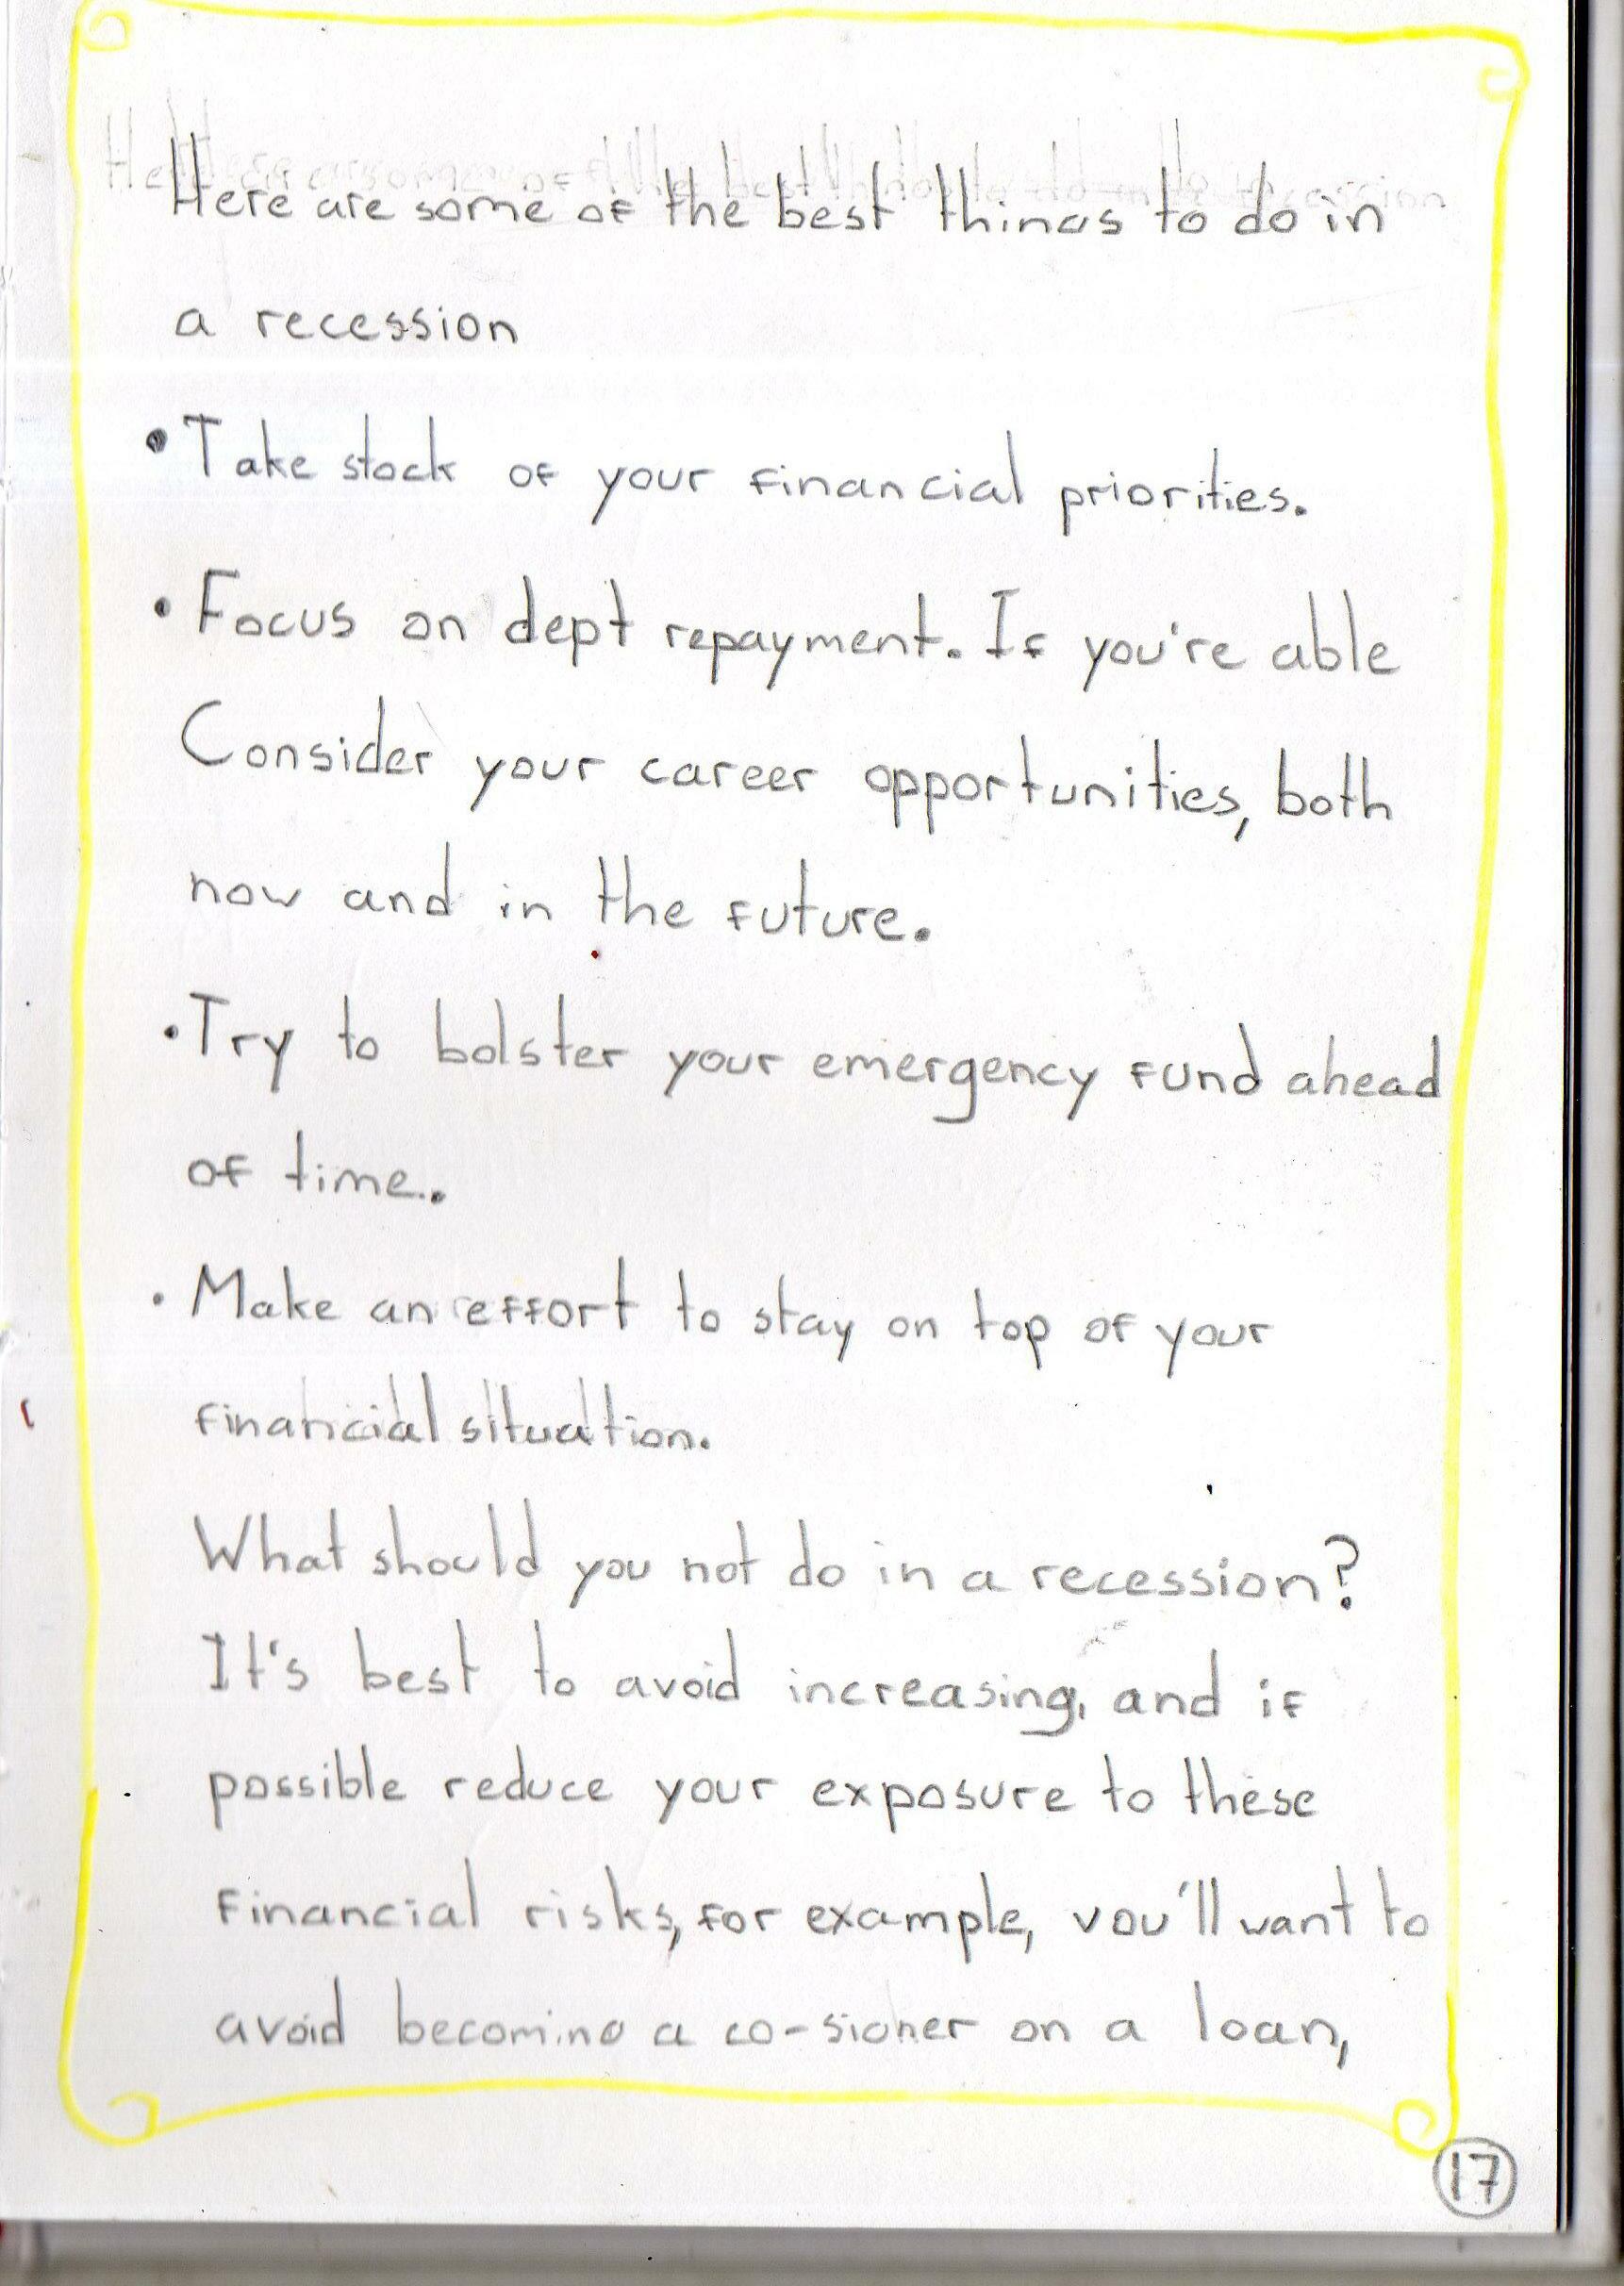 Here are some of the best things to do in
a recession
• Take stock of your financial priorities.
• Focus on dept repayment. If you're able
Consider your career opportunities, both
now and in the future.
• Try to bolster your emergency fund ahead
of time..
• Make an effort to stay on top of your
financial situation.
What should you not do in a recession?
It's best to avoid increasing, and if
possible reduce your exposure to these
financial risks, for example, you'll want to
avoid becoming a co-signer on a loan,
17